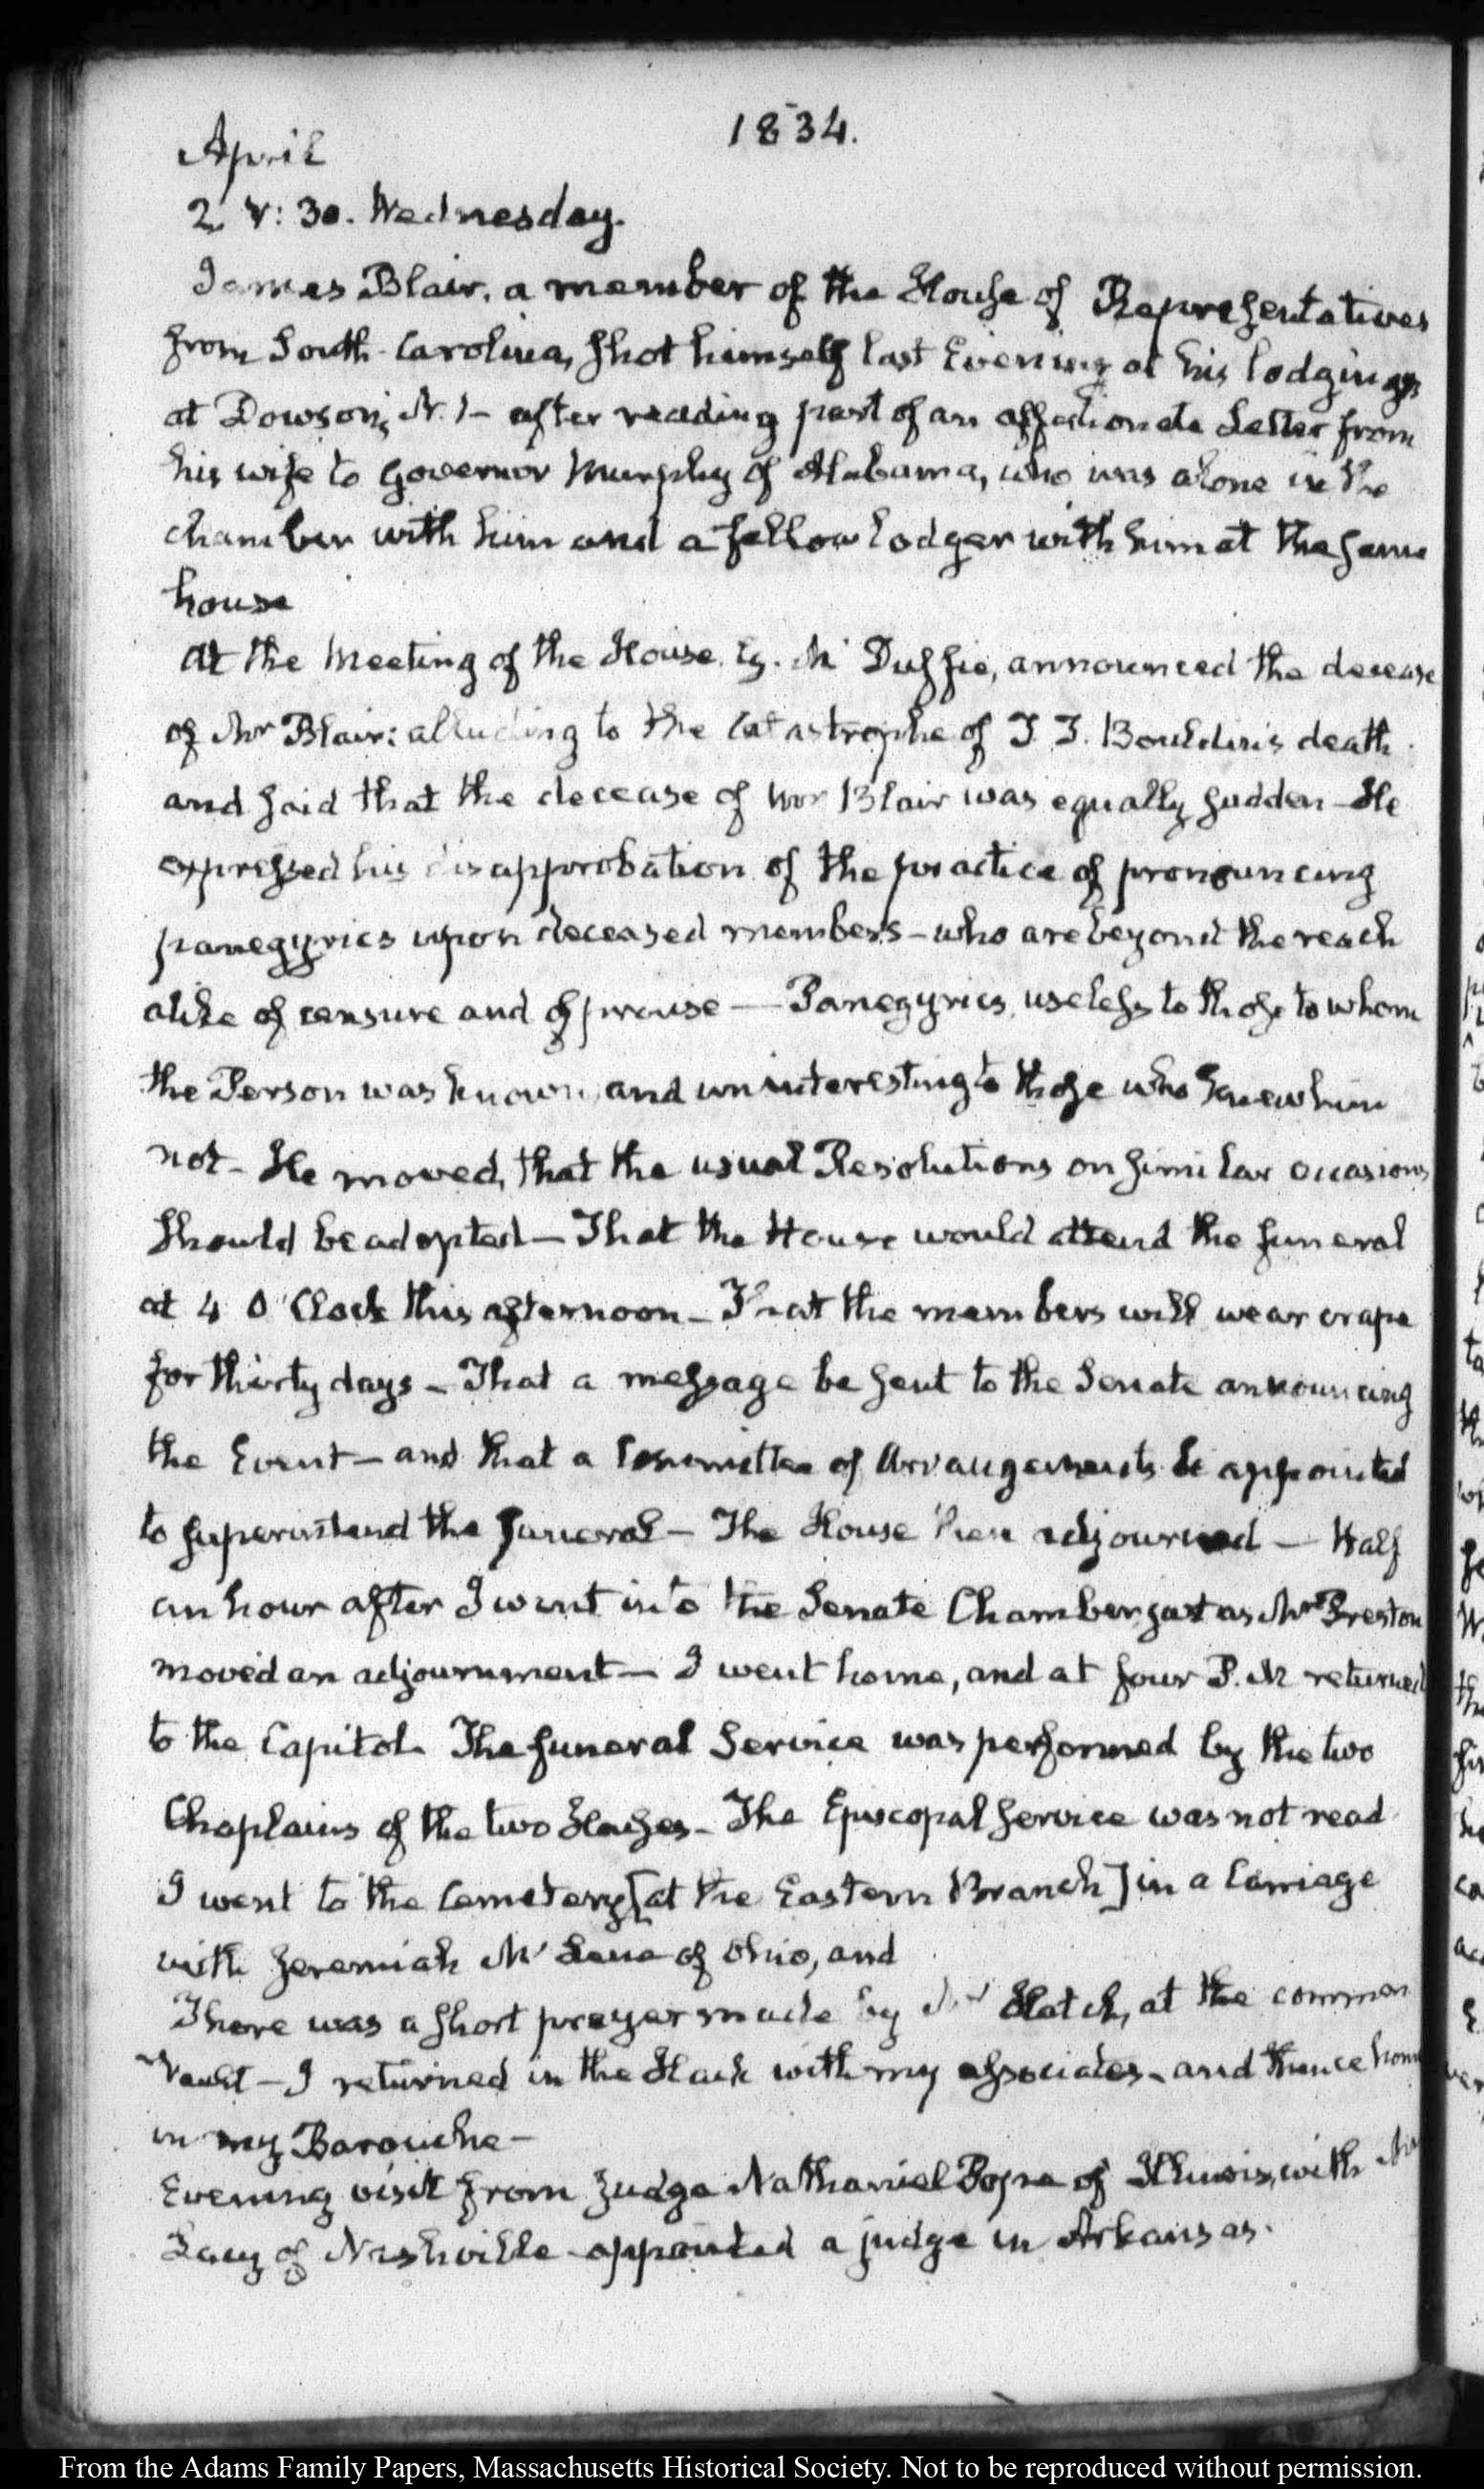 1834.
April
2. V: 30. Wednesday.
James Blair, a member of the House of Representatives
from South-Carolina, shot himself last Evening at his lodgings
at Dowson's N. 1— after reading part of an affectionate Letter from
his wife to Governor Murphy of Alabama, who was alone in the
chamber with him and a fellow lodger with him at the same
house
At the Meeting of the House G. Mc Duffie, announced the decease
of Mr Blair: alluding to the catastrophe of T T. Bouldin's death
and said that the decease of Mr Blair was equally sudden— He
expressed his disapprobation of the practice of pronouncing
panegyrics upon deceased members— who are beyond the reach
alike of censure and of praise— Panegyrics, useless to those to whom
the Person was known, and uninteresting to those who knew him
not— He moved, that the usual Resolutions on similar occasions
should be adopted— That the House would attend the funeral
at 4 O'Clock this afternoon— That the members will wear crape
for thirty days— That a message be sent to the Senate announcing
the Event— and that a Committee of Arrangements be appointed
to superintend the funeral— The House then adjourned— Half
an hour after I went into the Senate Chamber just as Mr Preston
moved an adjournment— I went home, and at four P.M returned
to the Capitol. The funeral Service was performed by the two
Chaplains of the two Houses— The Episcopal service was not read
I went to the Cemetery [at the Eastern Branch] in a Carriage
with Jeremiah Mc Lene of Ohio, and
There was a short prayer made by Mr Hatch, at the common
Vault— I returned in the Hack with my associates, and thence home
in my Barouche—
Evening visit from Judge Nathaniel Pope of Illinois, with Mr
Lacy of Nashville appointed a judge in Arkansas.
From the Adams Family Papers, Massachusetts Historical Society. Not to be reproduced without permission.